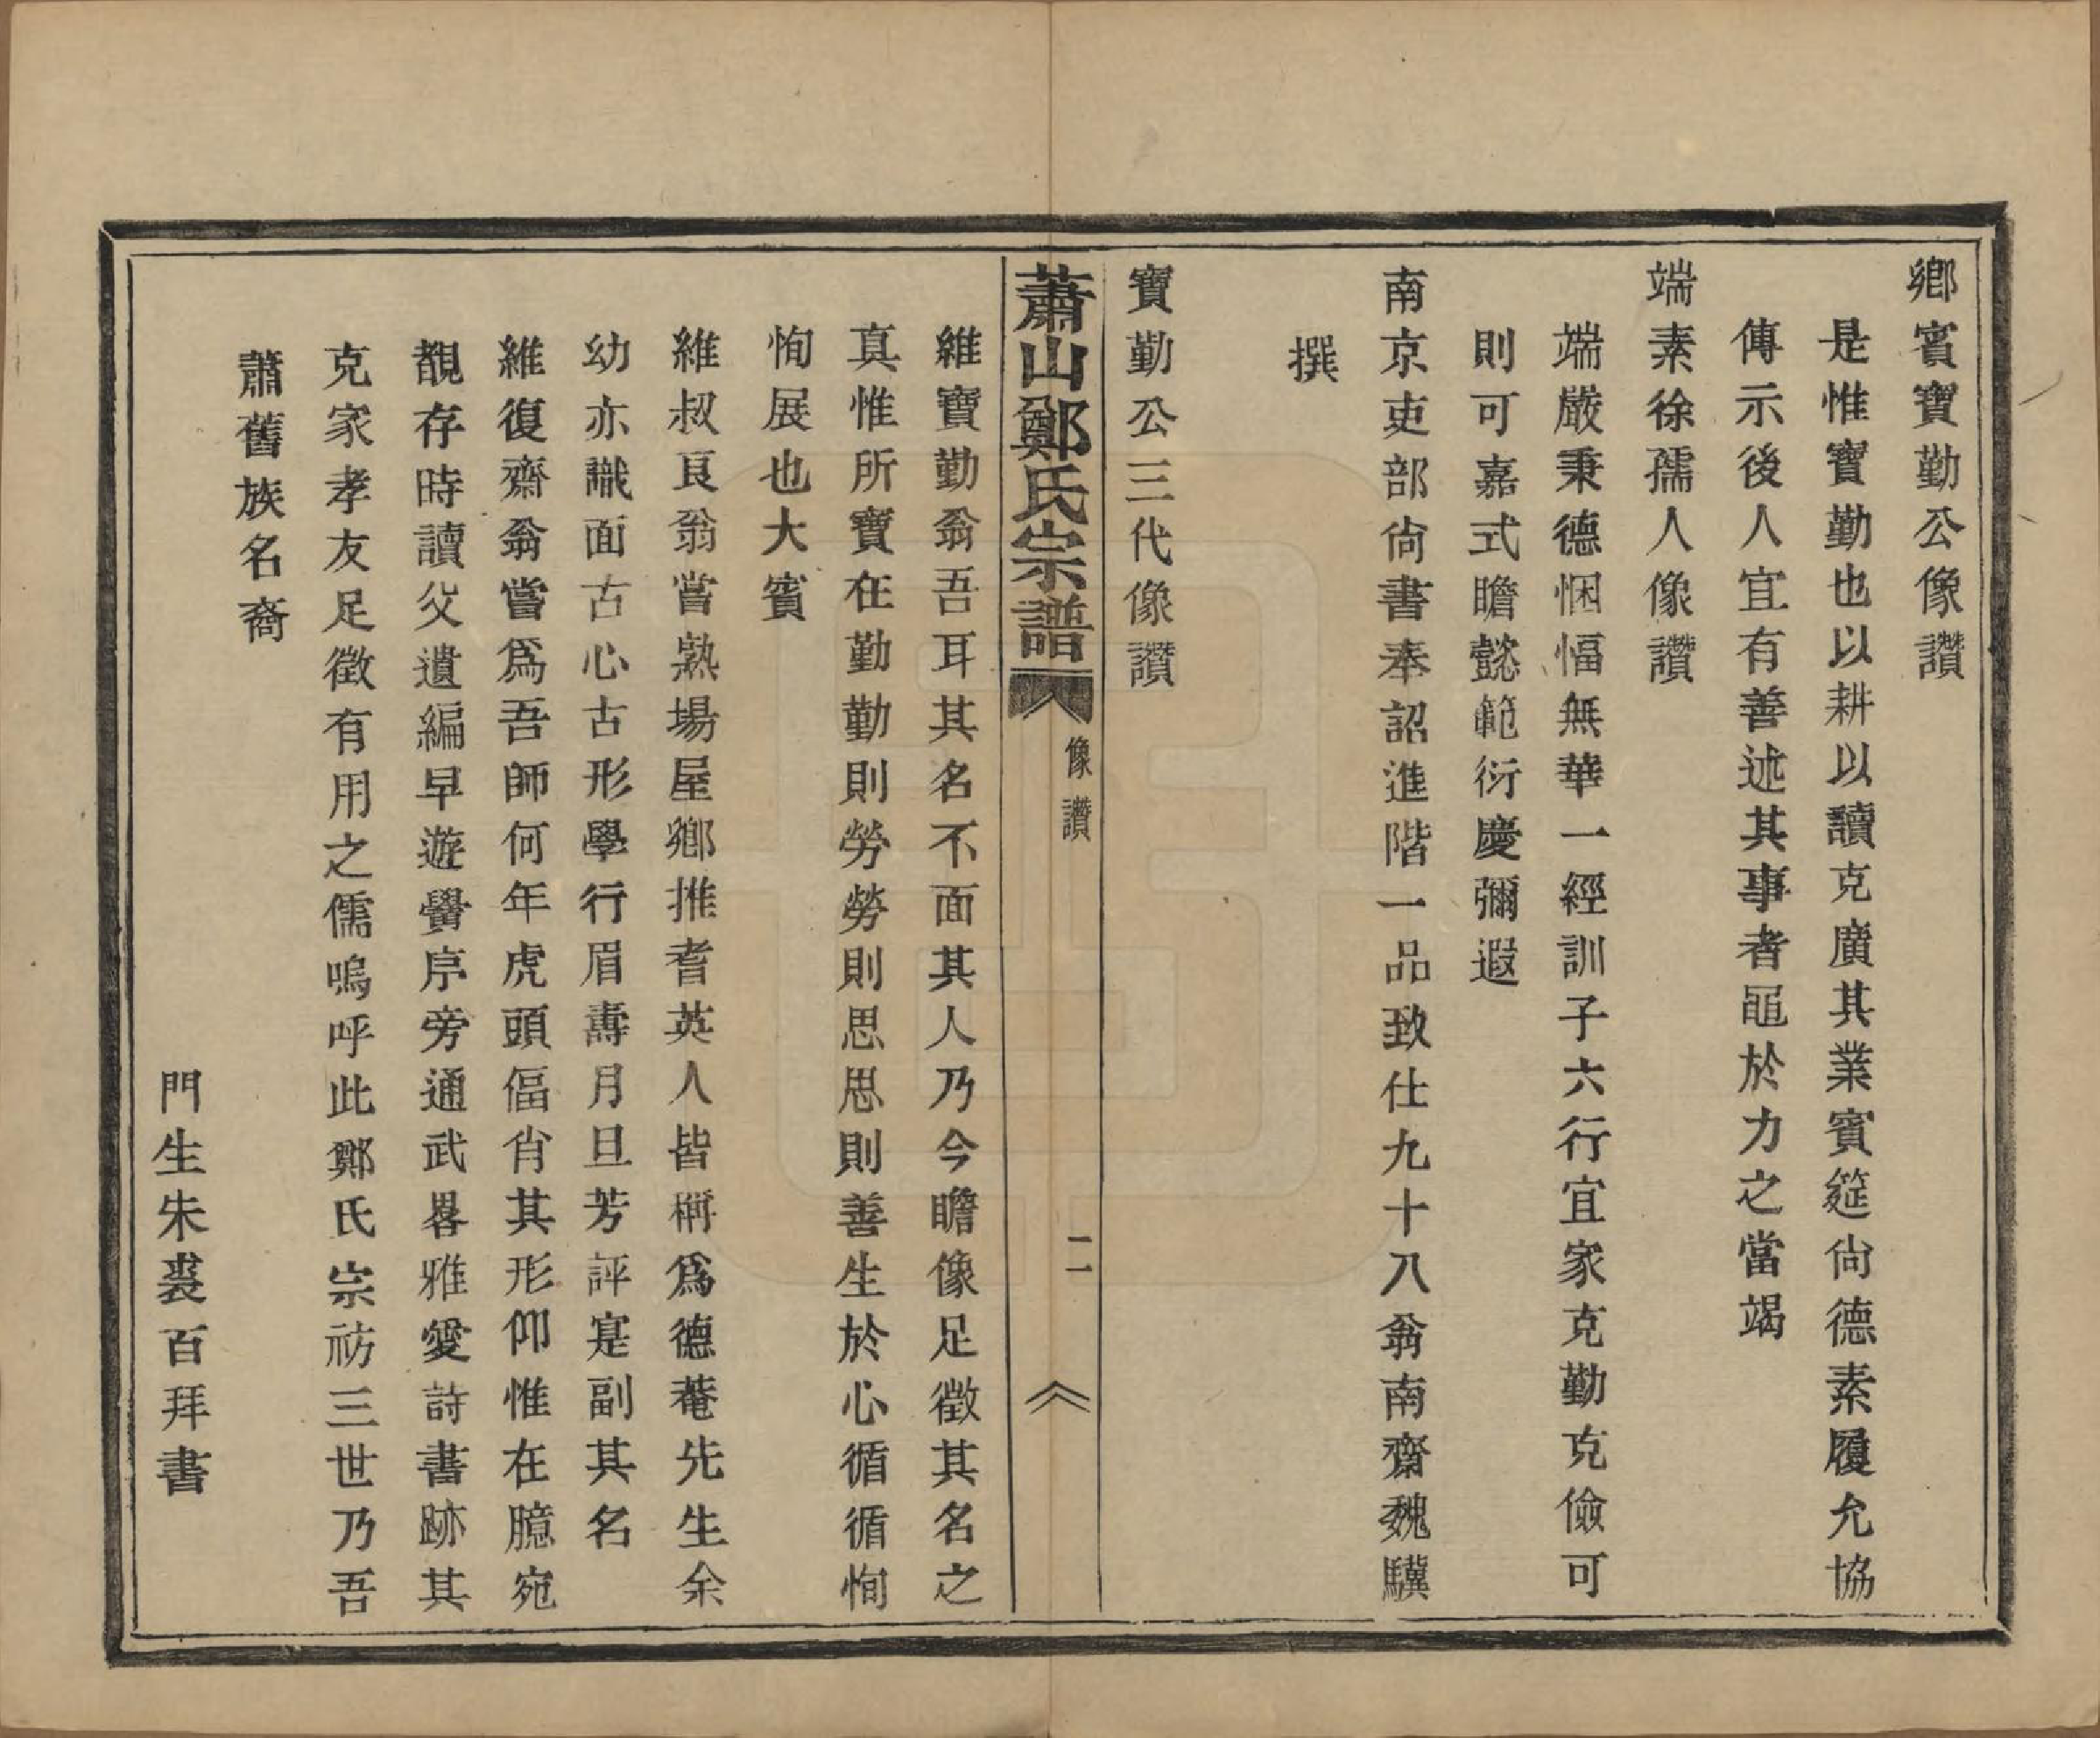 鄉賓寶勤公像讚
是惟寶勤也以耕以讀克廣其業賓筵尙德素履允協
傳示後人宜有善述其事者黽於力之當竭
端素徐孺人像讚
端嚴秉德悃愊無華一經訓子六行宜家克勤克儉可
則可嘉式瞻懿範衍慶彌遐
南京吏部尙書奉詔進階一品致仕九十八翁南齋魏驥
撰
寶勤公三代像讚
蕭山鄭氏宗譜
像讚
二
維寶勤翁吾耳其名不面其人乃今瞻像足徵其名之
真惟所寶在勤勤則勞勞則思思則善生於心循循恂
恂展也大賓
維叔良翁嘗熟場屋鄉推耆英人皆稱爲德菴先生余
幼亦識面古心古形學行眉壽月旦芳評寔副其名
維復齋翁嘗爲吾師何年虎頭偪肖其形仰惟在臆宛
覩存時讀父遺編早遊黌序旁通武畧雅愛詩書跡其
克家孝友足徵有用之儒嗚呼此鄭氏宗祊三世乃吾
蕭舊族名裔
門生朱裘百拜書